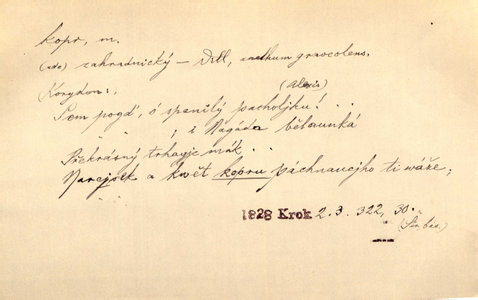 kopr, m.
zahradnický — Dill, anethum graveolens.
(Korydon:,
(Alexis)
Sem pogď, ó spanilý pacholjku! . .
" " ; i Nagáda bělounká
Překrásný trhagjc mák . .
Narcjsek a kwět kopru páchnaucjho ti wáže;
1828 Krok 2.3. 322, 30.